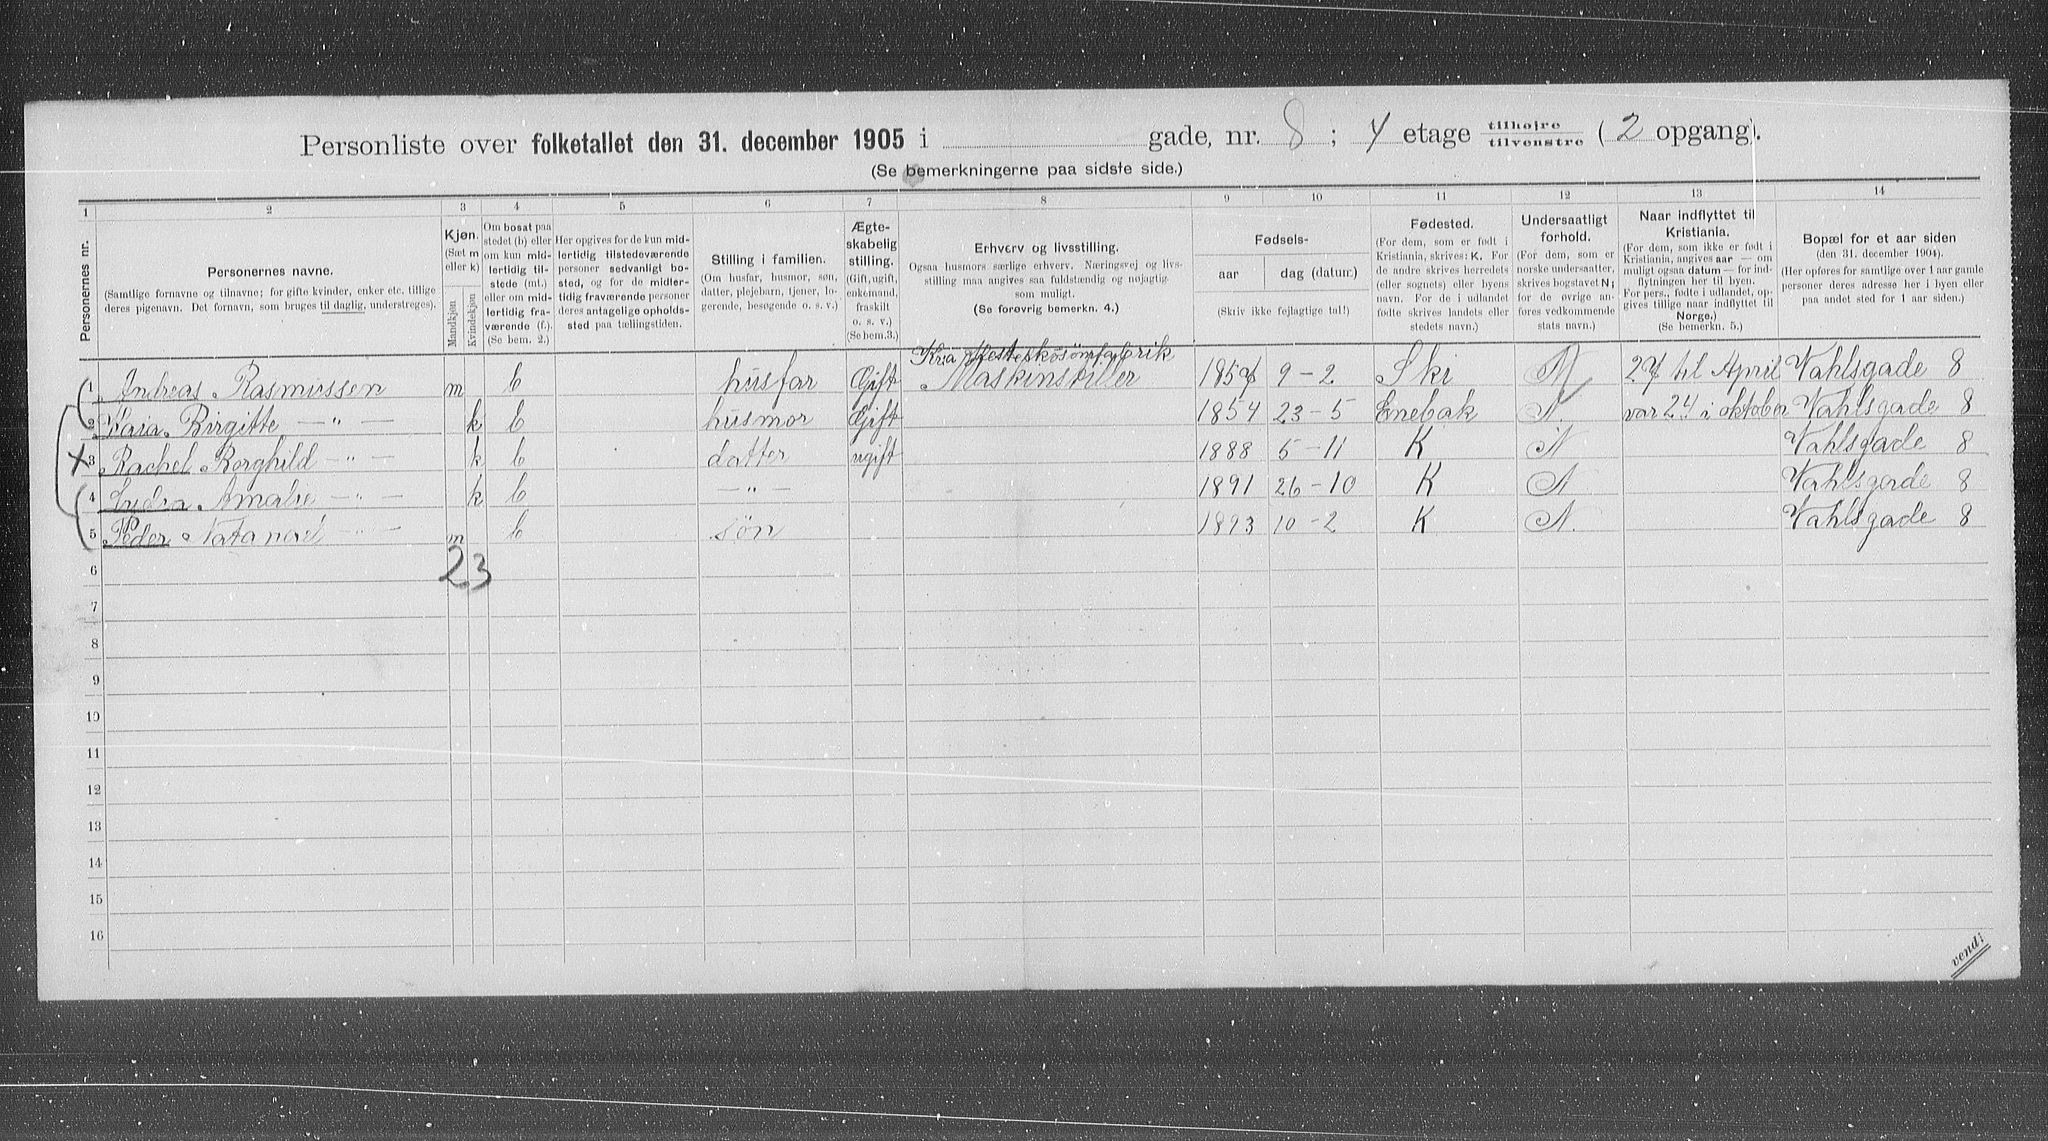 Personliste over folketallet den 31. december 1905 i gade, nr. 8 ; 4 etage tilhøjre / tilvenstre ( 2 opgang).
(Se bemerkningerne paa sidste side.)
1 2 3 4 5 6 7 8 9 10 11 12 13 14
Personernes nr.
Personernes navne.
(Samtlige fornavne og tilnavne; for gifte kvinder, enker etc. tillige
deres pigenavn. Det fornavn, som bruges til daglig, understreges).
Kjøn.
(Sæt m
eller k)
Mandkjøn
Kvindekjøn
Om bosat paa
stedet (b) eller
om kun mid-
lertidig til-
stede (mt.)
eller om mid-
lertidig fra-
værende (f.).
(Se bem. 2.)
Her opgives for de kun mid-
lertidig tilstedeværende
personer sedvanligt bo-
sted, og for de midler-
tidig fraværende personer
deres antagelige opholds-
sted paa tællingstiden.
Stilling i familien.
(Om husfar, husmor, søn,
datter, plejebarn, tjener, lo-
gerende, besøgende o. s. v.)
Ægte-
skabelig
stilling.
(Gift, ugift,
enkemand,
fraskilt
o. s. v.)
(Se bem.3.)
Erhverv og livsstilling.
Ogsaa husmors særlige erhverv. Næringsvej og livs-
stilling maa angives saa fuldstændig og nøjagtig
som muligt.
(Se forøvrig bemerkn. 4.)
Fødsels-
aar
dag (datum.)
(Skriv ikke fejlagtige tal!)
Fødested.
(For dem, som er født i
Kristiania, skrives: K. For
de andre skrives herredets
(eller sognets) eller byens
navn. For de i udlandet
fødte skrives landets eller
stedets navn.)
Undersaatligt
forhold.
(For dem, som er
norske undersaatter,
skrives bogstavet N;
for de øvrige an-
føres vedkommende
stats navn.)
Naar indflyttet til
Kristiania.
(For dem, som ikke er født i
Kristiania, angives aar — om
muligt ogsaa datum — for ind-
flytningen her til byen.
For pers., fødte i udlandet, op-
gives tillige naar indflyttet til
Norge.)
(Se bemerkn. 5.)
Bopæl for et aar siden
(den 31. december 1904).
(Her opføres for samtlige over 1 aar gamle
personer deres adresse her i byen eller
paa andet sted for 1 aar siden.)
Kria Hesteskosømfabrik
1 Andreas Rasmussen m b husfar Gift Maskinstiller 1857 9-2 Ski N 27 til April Wahlsgade 8
2 Birgitte —"— k b husmor Gift 1854 23-5 Enebak N. var 24 i oktober Wahlsgade 8
X 3 Rachel Borghild —"— k b datter ugift 1888 5-11 K N Wahlsgade 8
4 Lydia Amalie —"— k b —"— 1891 26-10 K N Wahlsgade 8
5 Peder Natanael —"— m b søn 1893 10-2 K N. Wahlsgade 8
6 2 3
7
8
9
10
11
12
13
14
15
16
vend!